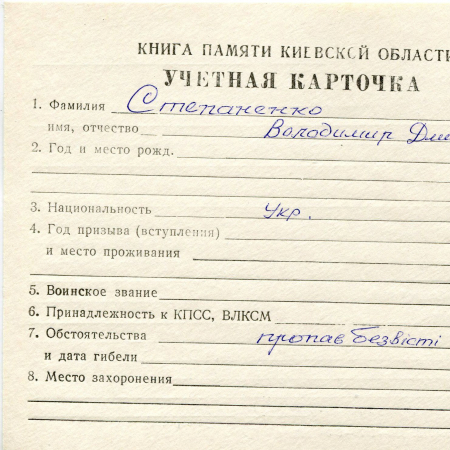 КНИГА ПАМЯТИ КИЕВСКОЙ ОБЛАСТИ
УЧЕТНАЯ КАРТОЧКА
1. Фамилия Степаненко
имя, отчество Володимир
2. Год и место рожд.
3. Национальность Укр.
4. Год призыва (вступления)
и место проживания
5. Воинское звание
6. Принадлежность к КПСС, ВЛКСМ
7. Обстоятельства пропав безвісті
и дата гибели
8. Место захоронения